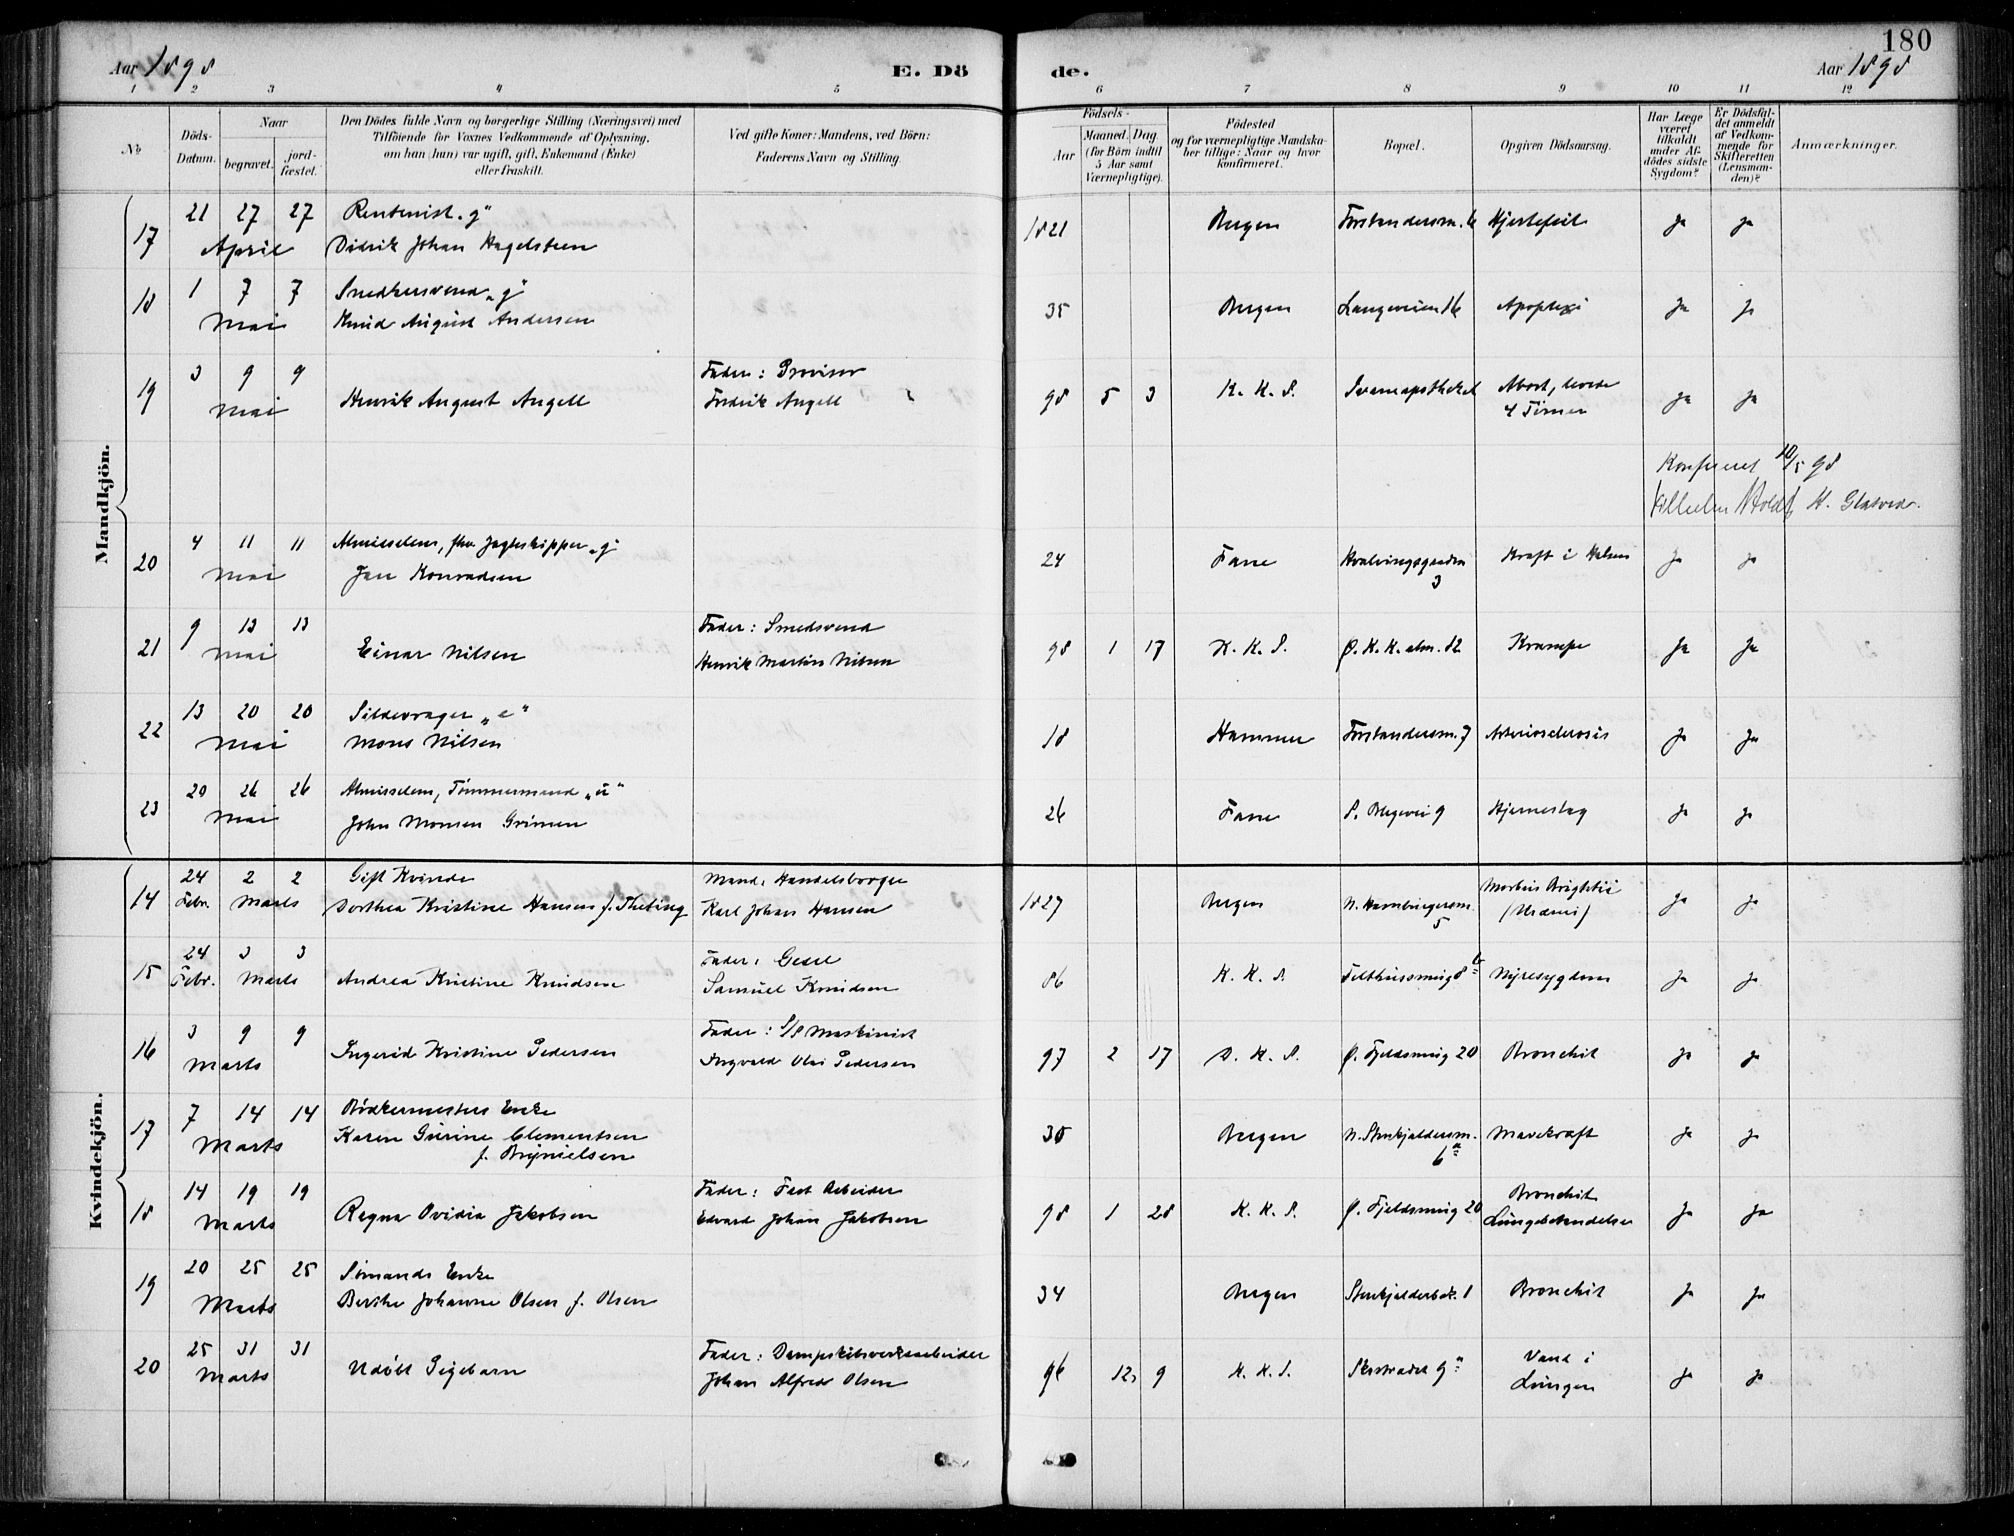 Aar 1898 E. Dö de. Aar 1898 180
1 2 3 4 5 6 7 8 9 10 11 12
No
Döds-Datum.
Naar
begravet.
jord-fæstet.
Den Dödes fulde Navn og borgerlige Stilling (Næringsvei) med
Tilföiende for Voxnes Vedkommende af Oplysning,
om han (hun) var ugift, gift, Enkemand (Enke)
eller fraskilt.
Ved gifte Koner: Mandens, ved Börn:
Faderens Navn og Stilling.
Födsels-
Aar
Maaned. Dag.
(for Börn indtil
5 Aar samt
Værnepligtige).
Födested
og for værnepligtige Mandska-
ber tillige: Naar og hvor
konfirmeret.
Bopæl.
Opgiven Dödsaarsag.
Har Læge
været
tilkaldt
under Af-
dödes sidste
Sygdom?
Er Dödsfal-
det anmeldt
af Vedkom-
mende for
Skifteretten
(Lensman-
den)?
Anmærkninger.
Mandkjön.
17 21 27 27 April Rentenist "g"
Didrik Johan Hagelsteen 1821 Bergen Forstandersm. 6 Hjertefeil Ja Ja
18 1 7 7 Mai Snedkersvend "g"
Knud August Andersen 35 Bergen Langeveien 16 Apoplexi Ja Ja
19 3 9 9 Mai Henrik August Angell Fader: Provisor
Fredrik Angell 98 5 3 K. K. S. Svaneapotheket Abort, levede
4 Timer Ja Ja
Konfereret 10/5 98
K. Glatved.
20 4 11 11 Mai Almisselem, fhv. Jagteskipper "g"
Jan Konradsen 24 Fane 3 Kræft i Halsen Ja Ja
21 9 13 13 Mai Einar Nilsen Fader: Smedsvend
Henrik Martin Nilsen 98 1 17 K. K. S. Ø. K. K. alm. 12 Krampe Ja Ja
22 13 20 20 Mai Sildevrager "e"
Mons Nilsen 18 Hammer Forstandersm. 7 Arteriosclerosis Ja Ja
23 20 26 26 Mai Almisselem, Tømmermand "u"
John Monsen Grimen 26 Fane S. Blegevei 9 Hjerneslag Ja Ja
Kvindekjön.
14 24 Febr. 2 2 Marts Gift Kvinde
Dorthea Kristine Hansen f. Theting Mand: Handelsborger
Karl Johan Hansen 1827 Bergen N. Hamburgersm.
5 Morbus Brightii
(Uræmi) Ja Ja
15 24 Febr. 3 3 Marts Andrea Kristine Knudsen Fader: Gesel
Samuel Knudsen 86 K. K. S. Felthussmug 8 b Nyresygdom Ja Ja
16 3 9 9 Marts Ingerid Kristine Pedersen Fader: S/S Maskinist
Ingvald Olai Pedersen 97 2 17 D. K. S. Ø. Fjeldsmug 20 Bronchit Ja Ja
17 7 14 14 Marts Bødkermesters Enke
Karen Gurine Clementsen
f. Brynielsen 30 Bergen N. Stenkjeldersm.
6 a Mavekræft Ja Ja
18 14 19 19 Marts Ragna Ovidia Jakobsen Fader: Fast Arbeider
Edvard Johan Jakobsen 98 1 28 K. K. S. Ø. Fjeldsmug 20 Bronchit
Lungebetændelse Ja Ja
19 20 25 25 Marts Sømands Enke
Berthe Johanne Olsen f. Olsen 34 Bergen Stenkjelderbak. 1 Bronchit Ja Ja
20 25 31 31 Marts Udøbt Pigebarn Fader: Dampskibsverksarbeider
Johan Alfred Olsen 96 12 9 K. K. S. 9 a Vand i
Lungen Ja Ja